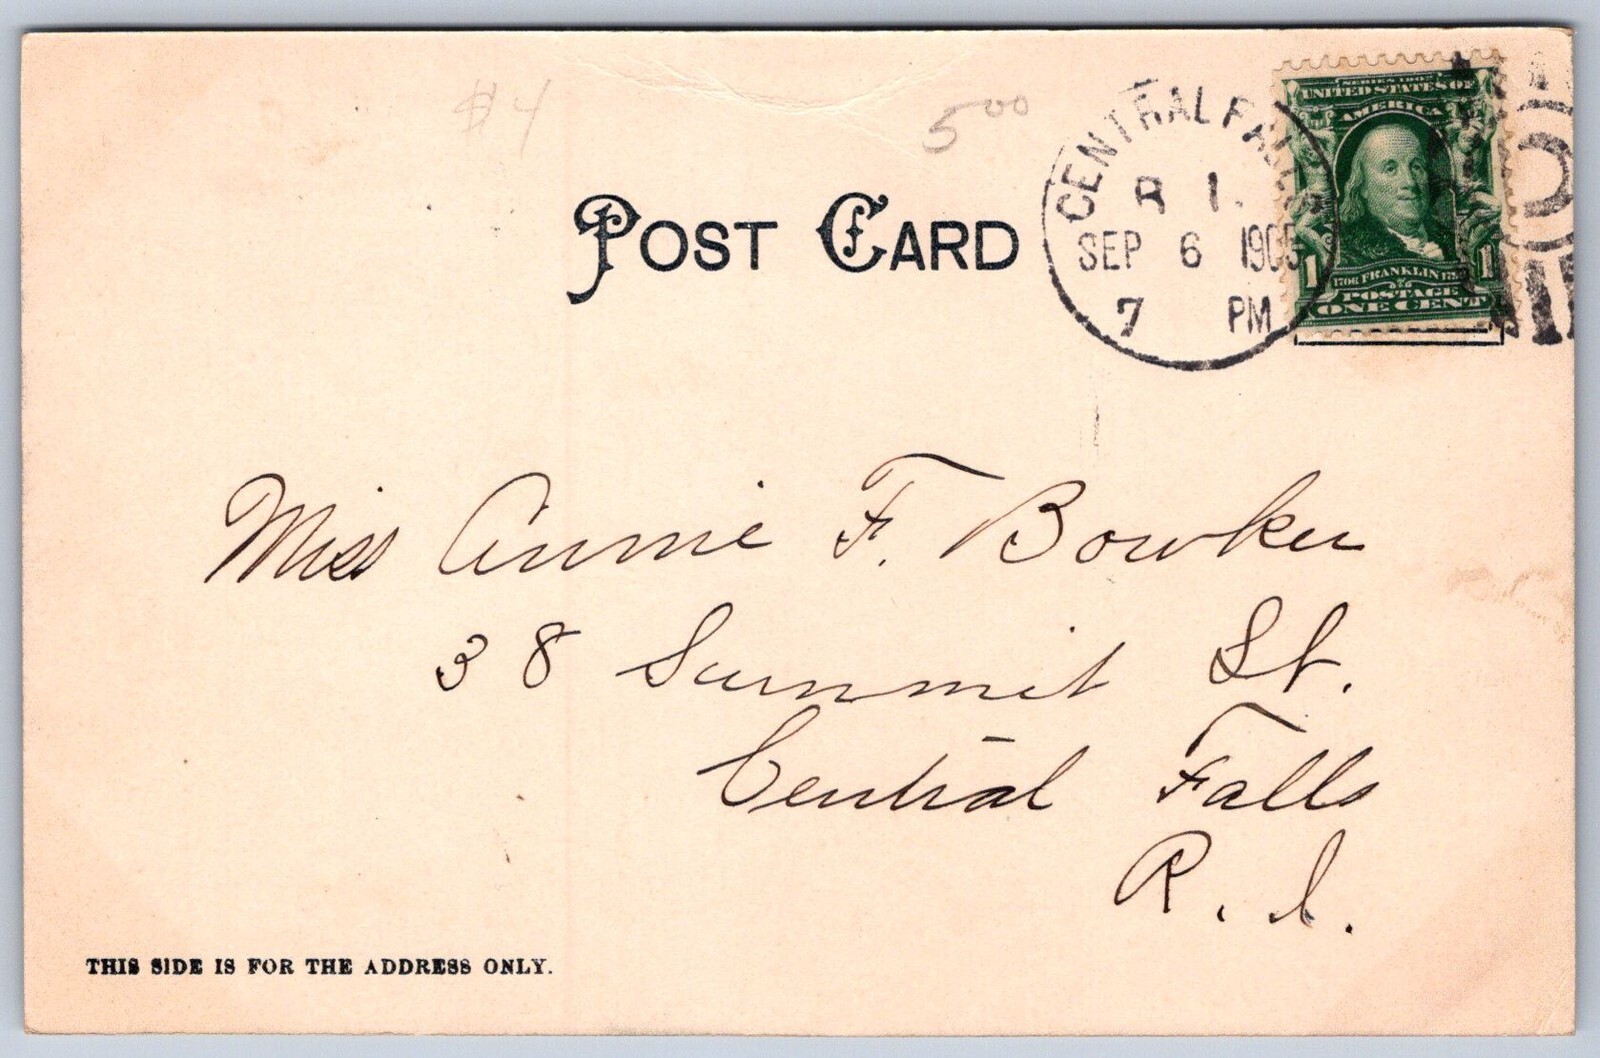 $4
5 00
CENTRAL FALLS
R I.
SEP 6 1905
7 PM
SERIES 1902
UNITED STATES OF
AMERICA
1 1
1706 FRANKLIN 1790
POSTAGE
ONE CENT
POST CARD
Miss Annie F. Bowker
38 Summit St.
Central Falls
R. I.
THIS SIDE IS FOR THE ADDRESS ONLY.